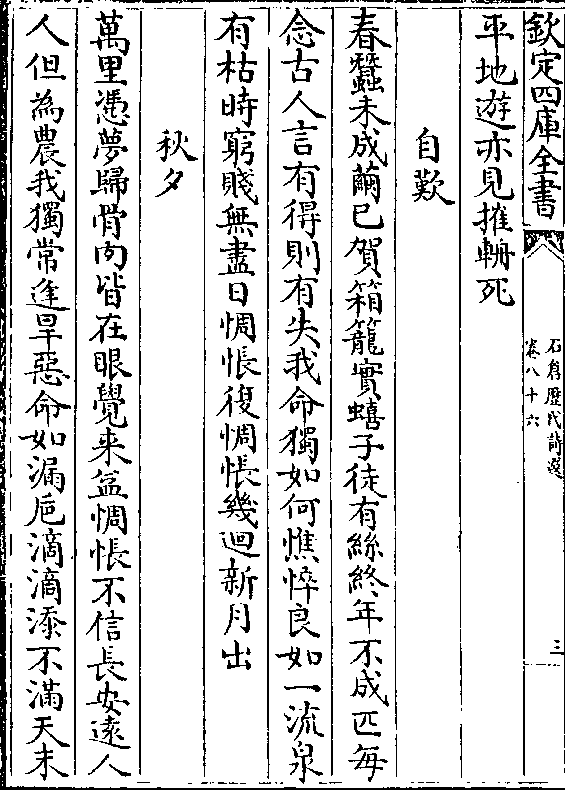 欽定四庫全書
石倉歷代詩選
卷八十六
三
平地遊亦見摧輈死
自歎
春蠶未成繭已賀箱籠實蟢子徒有絲終年不成匹每
念古人言有得則有失我命獨如何憔悴良如一流泉
有枯時窮賤無盡日惆悵復惆悵幾迴新月出
秋夕
萬里憑夢歸骨肉皆在眼覺来益惆悵不信長安遠人
人但為農我獨常逢旱惡命如漏巵滴滴添不滿天末